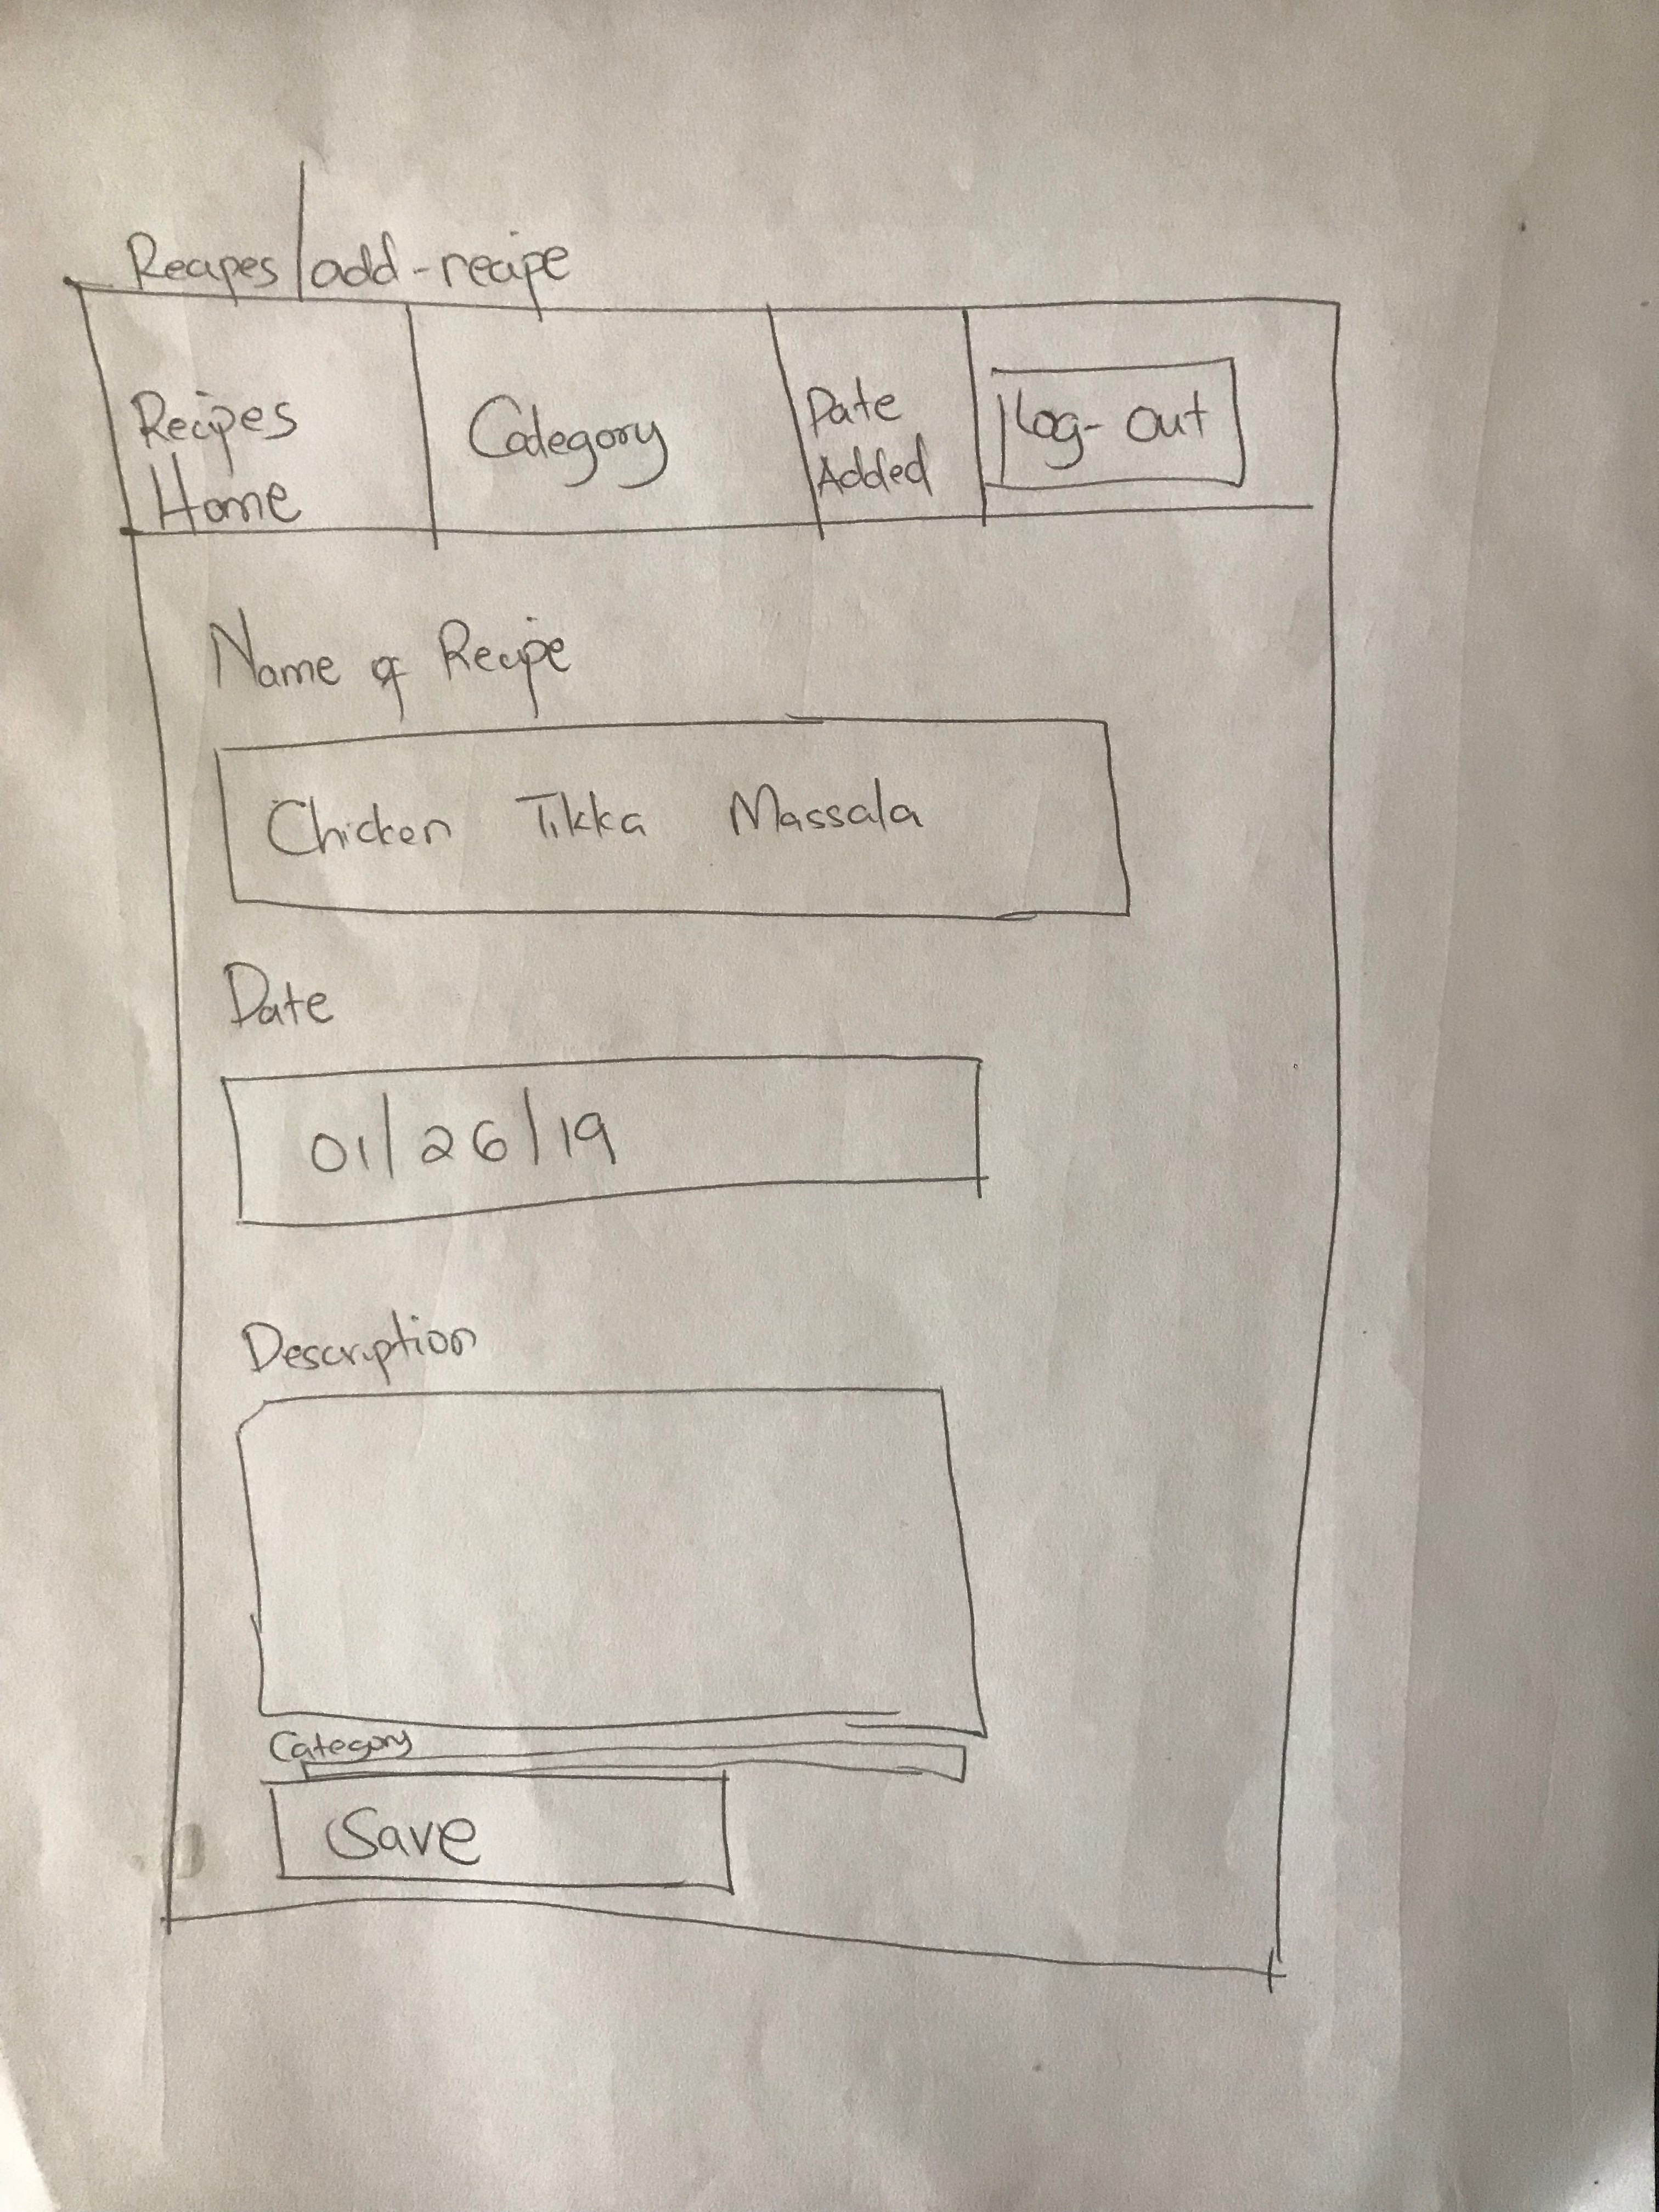 Recipes/add-recipe
Recipes
Home
Category
Date
Added
log-out
Name of Recipe
Chicken Tikka Massala
Date
01/26/19
Description
Category
Save